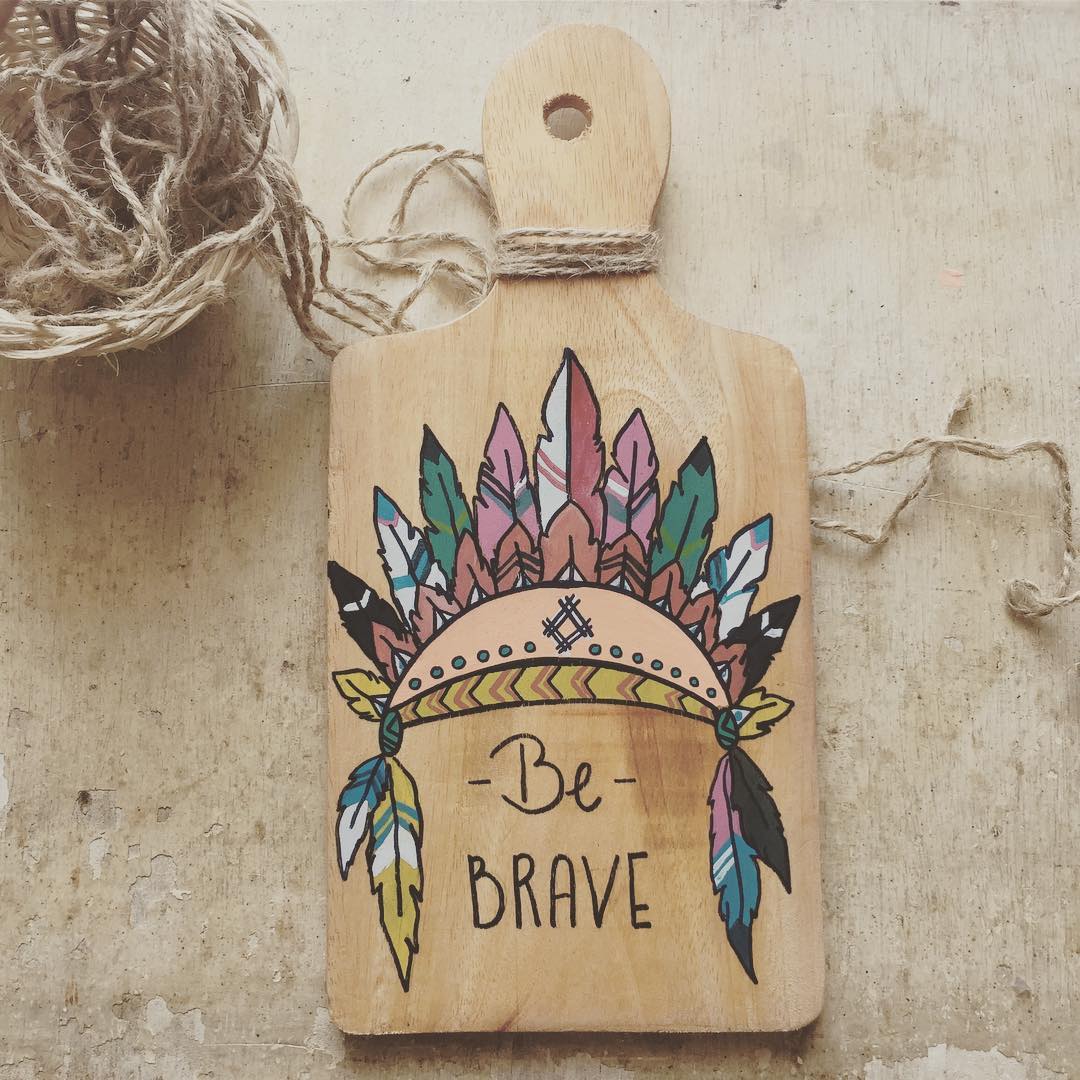 - Be -
BRAVE